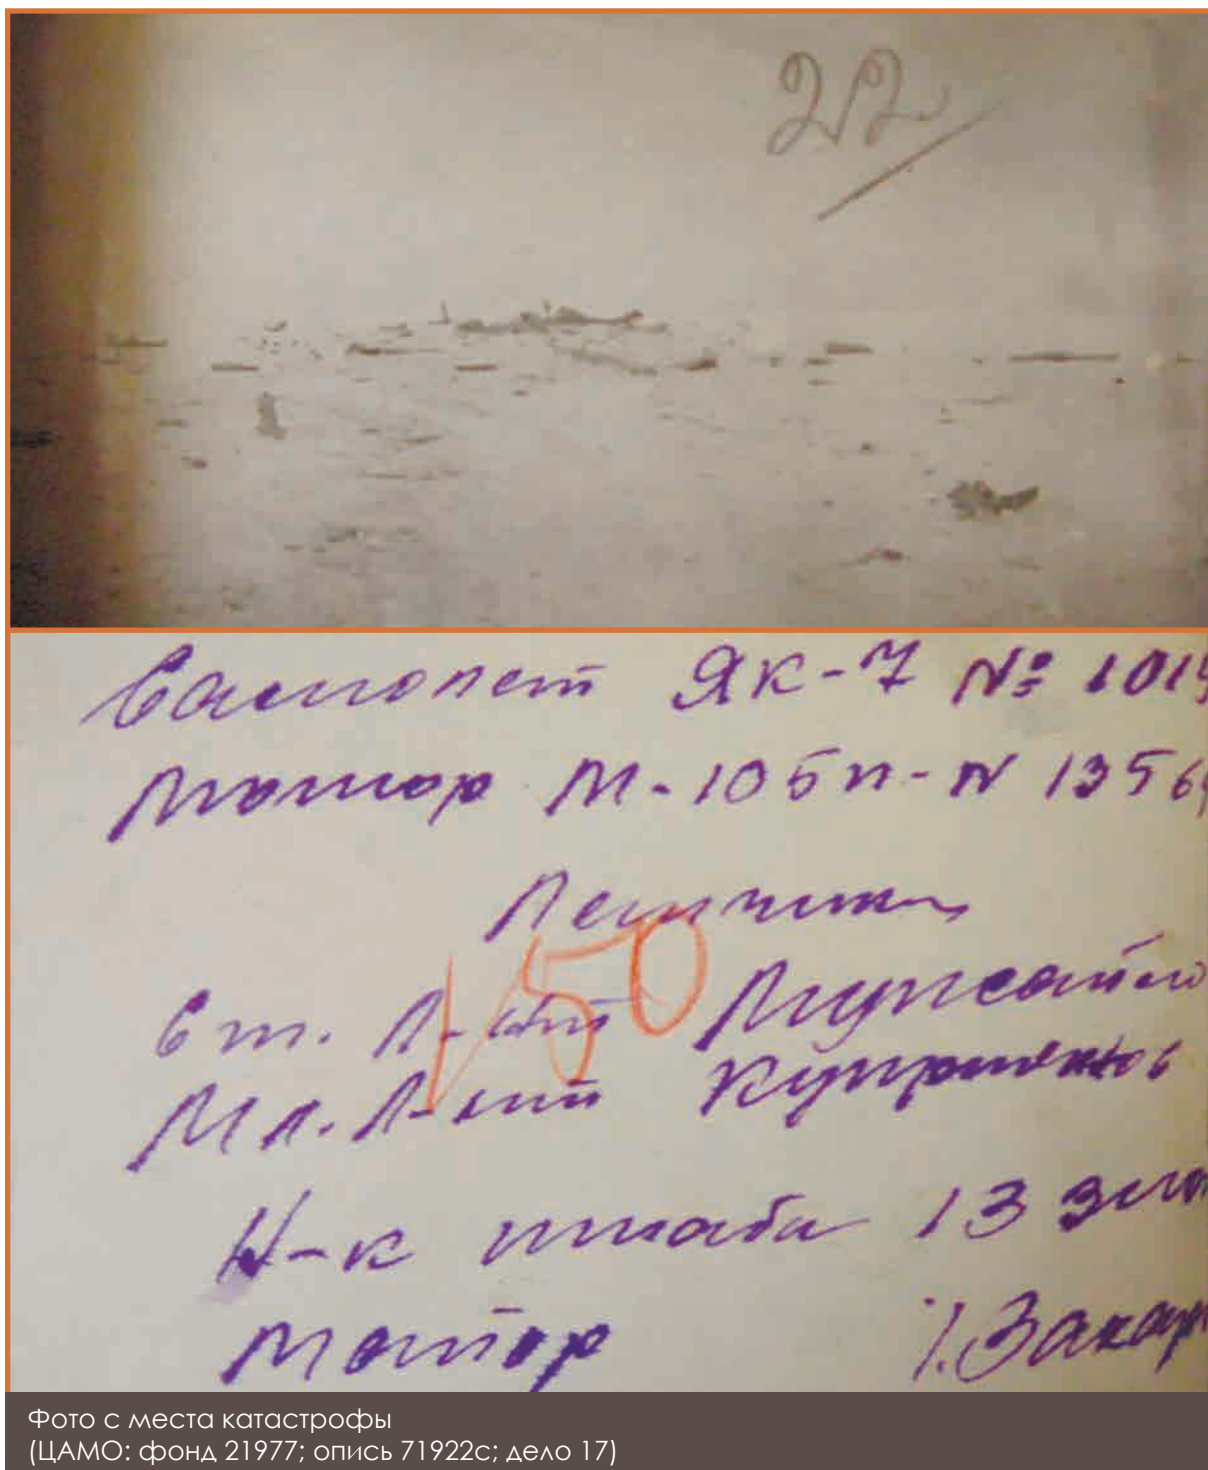 22
Самолет Як-7 № 101
Мотор М-105п-N 1356
Летчики
150
Ст. Л-нт
Мл. Л-нт
Н-к штаба 13
Майор /.Захар
Фото с места катастрофы
(ЦАМО: фонд 21977; опись 71922с; дело 17)